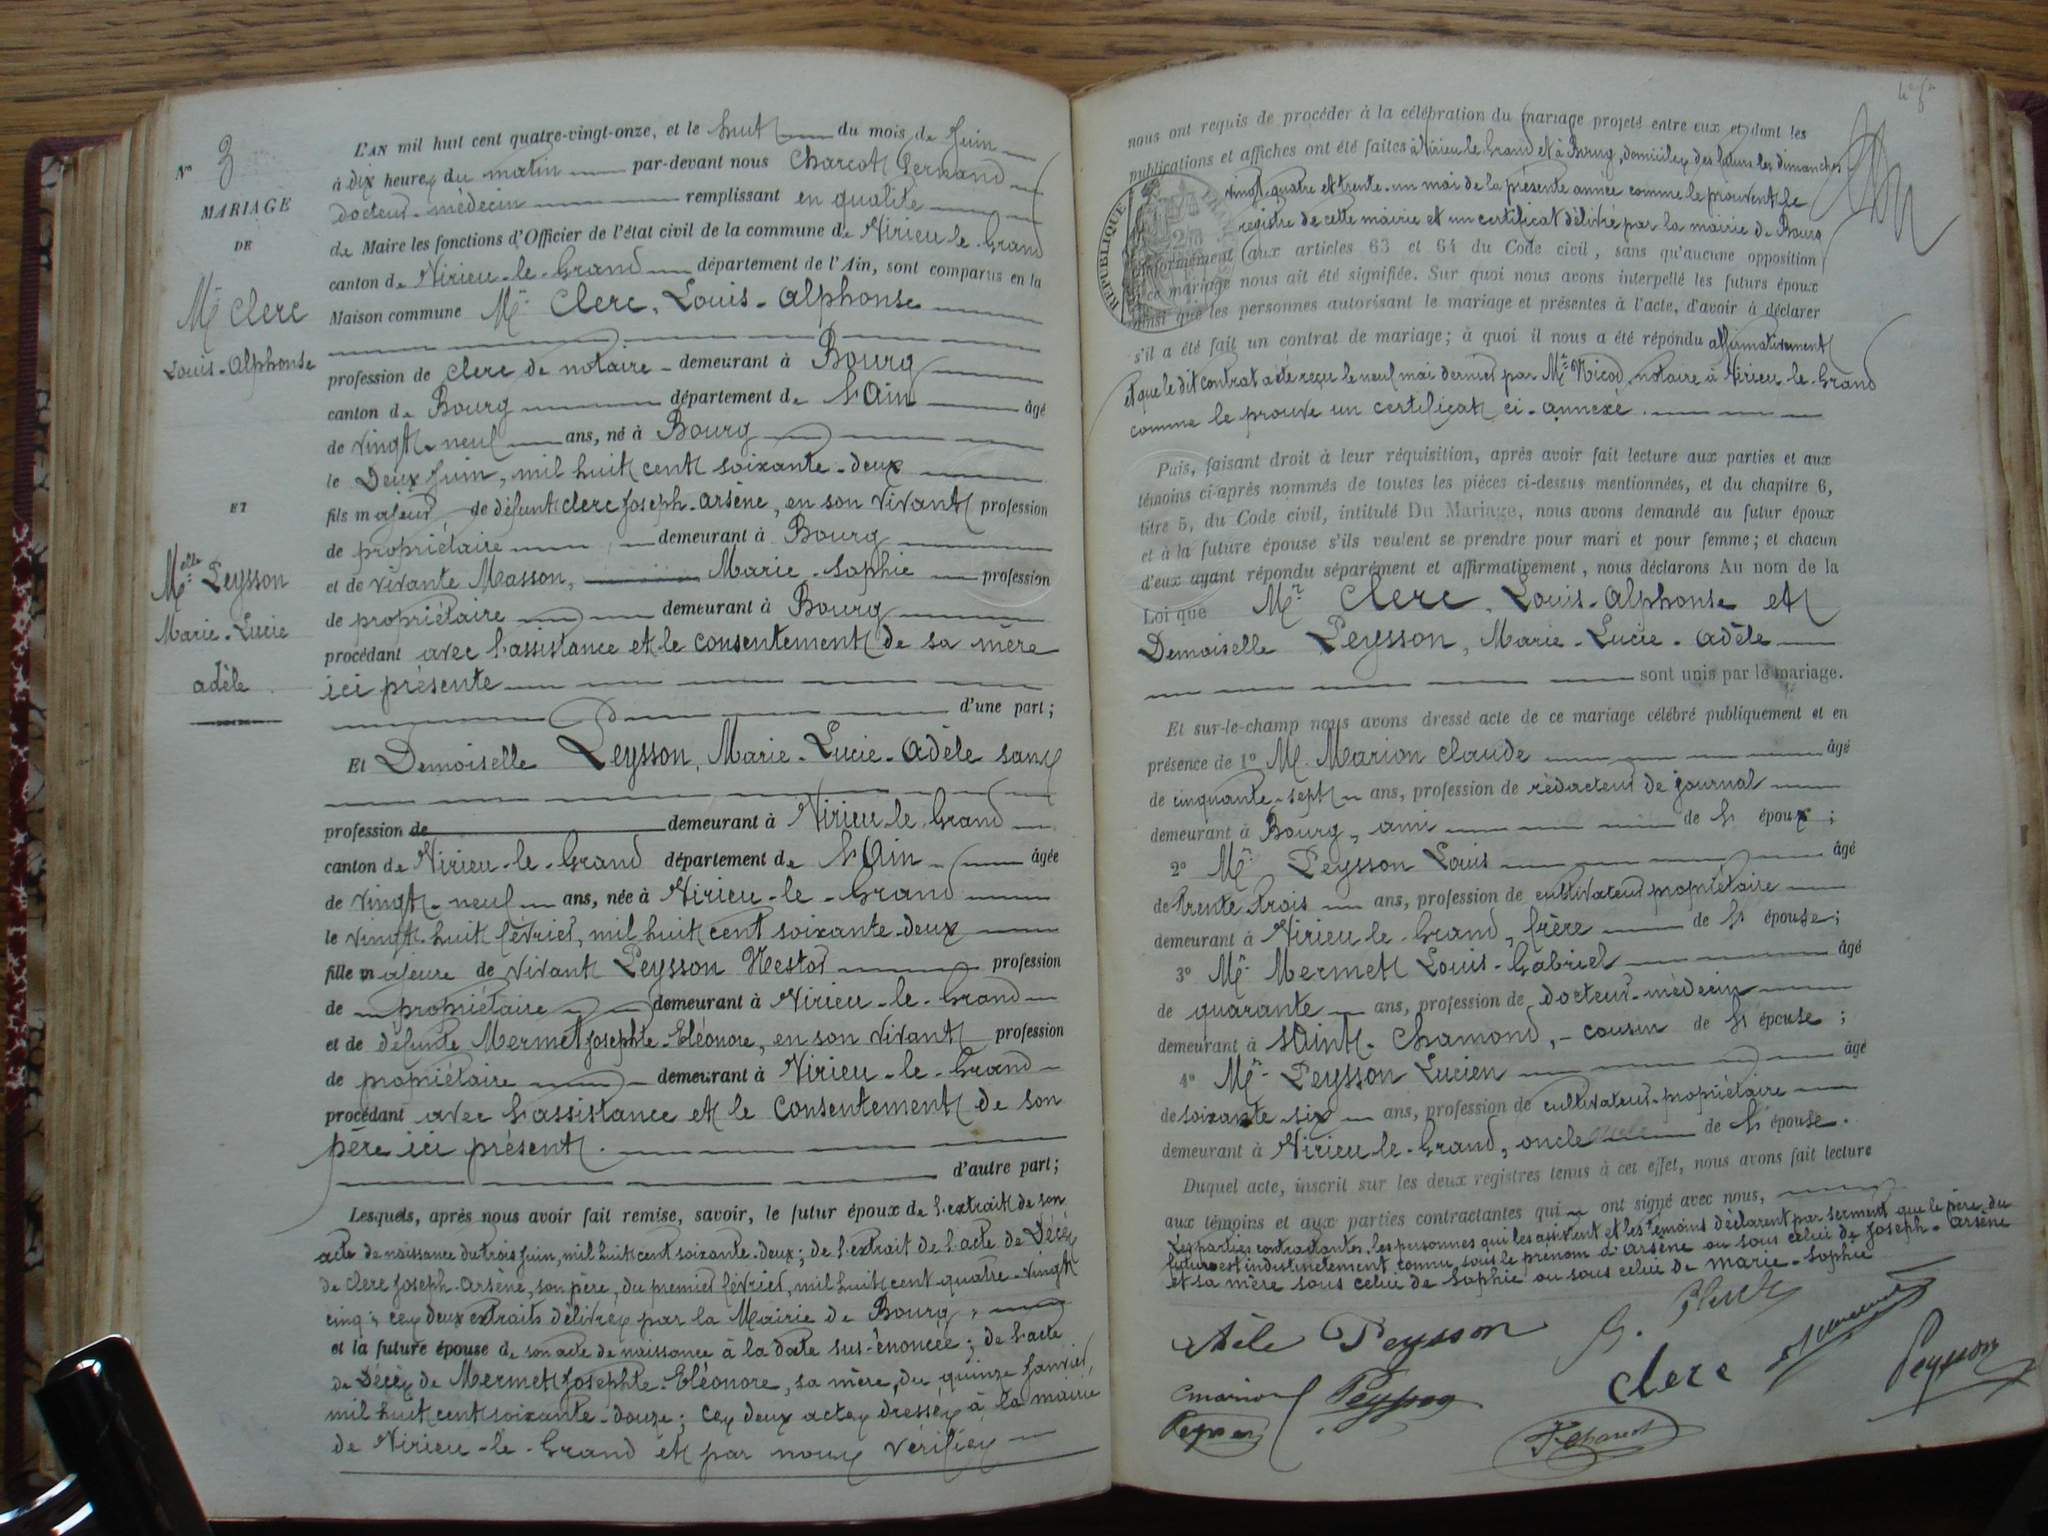 N° 3
MARIAGE
DE
Mr Clerc
Louis-Alphonse
ET
Melle Peysson
Marie-Lucie
adèle
L'AN mil huit cent quatre-vingt-onze, et le huit du mois de Juin
à dix heures du matin par-devant nous Charcot Fernand
docteur-médecin remplissant en qualité
de Maire les fonctions d'Officier de l'état civil de la commune de Virieu-le-Grand
canton de Virieu-le-Grand département de l'Ain, sont comparus en la
Maison commune Mr Clerc, Louis-Alphonse
profession de clerc de notaire demeurant à Bourg
canton de Bourg département de l'Ain âgé
de vingt-neuf ans, né à Bourg
le Deux Juin, mil huit cent soixante-deux
fils majeur de défunt Clerc Joseph-Arsène, en son vivant profession
de propriétaire demeurant à Bourg
et de vivante Masson, Marie-Sophie profession
de propriétaire demeurant à Bourg
procédant avec l'assistance et le consentement de sa mère
ici présente
d'une part;
Et Demoiselle Peysson, Marie-Lucie-Adèle sans
profession de demeurant à Virieu-le-Grand
canton de Virieu-le-Grand département de l'Ain âgée
de vingt-neuf ans, née à Virieu-le-Grand
le vingt-huit février, mil huit cent soixante-deux
fille majeure de vivant Peysson Nestor profession
de propriétaire demeurant à Virieu-le-Grand
et de défunte Mermet Josephte-Eléonore, en son vivant profession
de propriétaire demeurant à Virieu-le-Grand
procédant avec l'assistance et le consentement de son
père ici présent.
d'autre part;
Lesquels, après nous avoir fait remise, savoir, le futur époux de l'extrait de son
acte de naissance du trois juin, mil huit cent soixante-deux; de l'extrait de l'acte de Décès
de Clerc Joseph-Arsène, son père, du premier février, mil huit cent quatre-vingt
cinq; ces deux extraits délivrés par la Mairie de Bourg;
et la future épouse de son acte de naissance à la date sus-énoncée; de l'acte
de Décès de Mermet Josephte-Eléonore, sa mère, du quinze Janvier,
mil huit cent soixante-douze; ces deux actes dressés à la mairie
de Virieu-le-Grand et par nous vérifiés
nous ont requis de procéder à la célébration du mariage projeté entre eux et dont les
publications et affiches ont été faites à Virieu le Grand et à Bourg, domiciles des futurs les dimanches
vingt-quatre et trente-un mai de la présente année comme le prouvent le
registre de cette mairie et un certificat délivré par la mairie de Bourg
conformément aux articles 63 et 64 du Code civil, sans qu'aucune opposition
à ce mariage nous ait été signifiée. Sur quoi nous avons interpellé les futurs époux
ainsi que les personnes autorisant le mariage et présentes à l'acte, d'avoir à déclarer
s'il a été fait un contrat de mariage; à quoi il nous a été répondu affirmativement
et que le dit contrat a été reçu le neuf mai dernier par Me Nicod, notaire à Virieu-le-Grand
comme le prouve un certificat ci-annexé.
Puis, faisant droit à leur réquisition, après avoir fait lecture aux parties et aux
témoins ci-après nommés de toutes les pièces ci-dessus mentionnées, et du chapitre 6,
titre 5, du Code civil, intitulé Du Mariage, nous avons demandé au futur époux
et à la future épouse s'ils veulent se prendre pour mari et pour femme; et chacun
d'eux ayant répondu séparément et affirmativement, nous déclarons Au nom de la
Loi que Mr Clerc, Louis-Alphonse et
Demoiselle Peysson, Marie-Lucie-Adèle
sont unis par le mariage.
Et sur-le-champ nous avons dressé acte de ce mariage célébré publiquement et en
présence de 1° M. Marion Claude âgé
de cinquante-sept ans, profession de rédacteur de journal
demeurant à Bourg, ami de l'époux;
2° Mr Peysson Louis âgé
de trente trois ans, profession de cultivateur propriétaire
demeurant à Virieu-le-Grand, frère de l'épouse;
3° Mr Mermet Louis-Gabriel âgé
de quarante ans, profession de docteur-médecin
demeurant à Saint-Chamond, cousin de l'épouse;
4° Mr Peysson Lucien âgé
de soixante six ans, profession de cultivateur-propriétaire
demeurant à Virieu-le-Grand, oncle de l'épouse.
Duquel acte, inscrit sur les deux registres tenus à cet effet, nous avons fait lecture
aux témoins et aux parties contractantes qui ont signé avec nous,
Les parties contractantes, les personnes qui les assistent et les témoins déclarent par serment que le père du
futur est indistinctement connu sous le prénom d'Arsène ou sous celui de Joseph-Arsène
et sa mère sous celui de Sophie ou sous celui de Marie-Sophie
Adèle Peysson
Clerc
Peysson
Cmarion
Peysson
Peysson
F. Charcot
REPUBLIQUE FRANCAISE